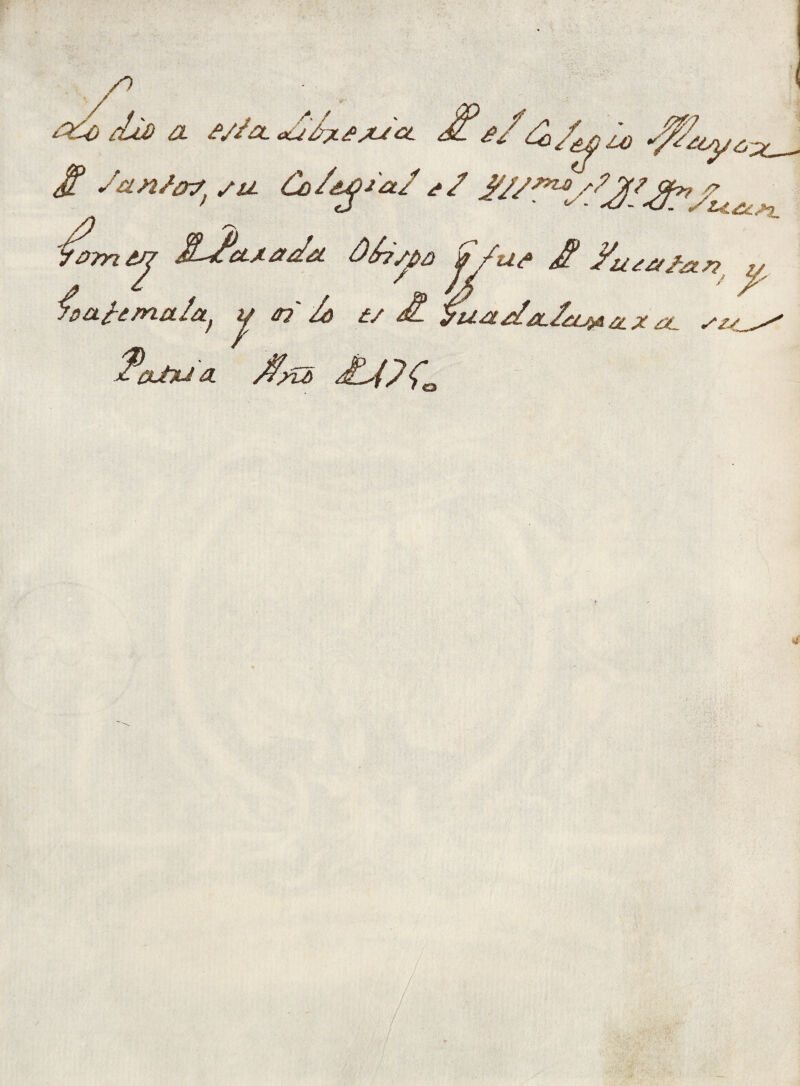 Lo dio a esta Libreria de el Colegio Mayor
de Santos, su Colegial el Yllmo. Sr. D. Dr. Juan
Gomez de Parada Obispo q fue de Yucatan, y
Goatemala, y oi lo es de Guadalaxara su
Patria Año de 175